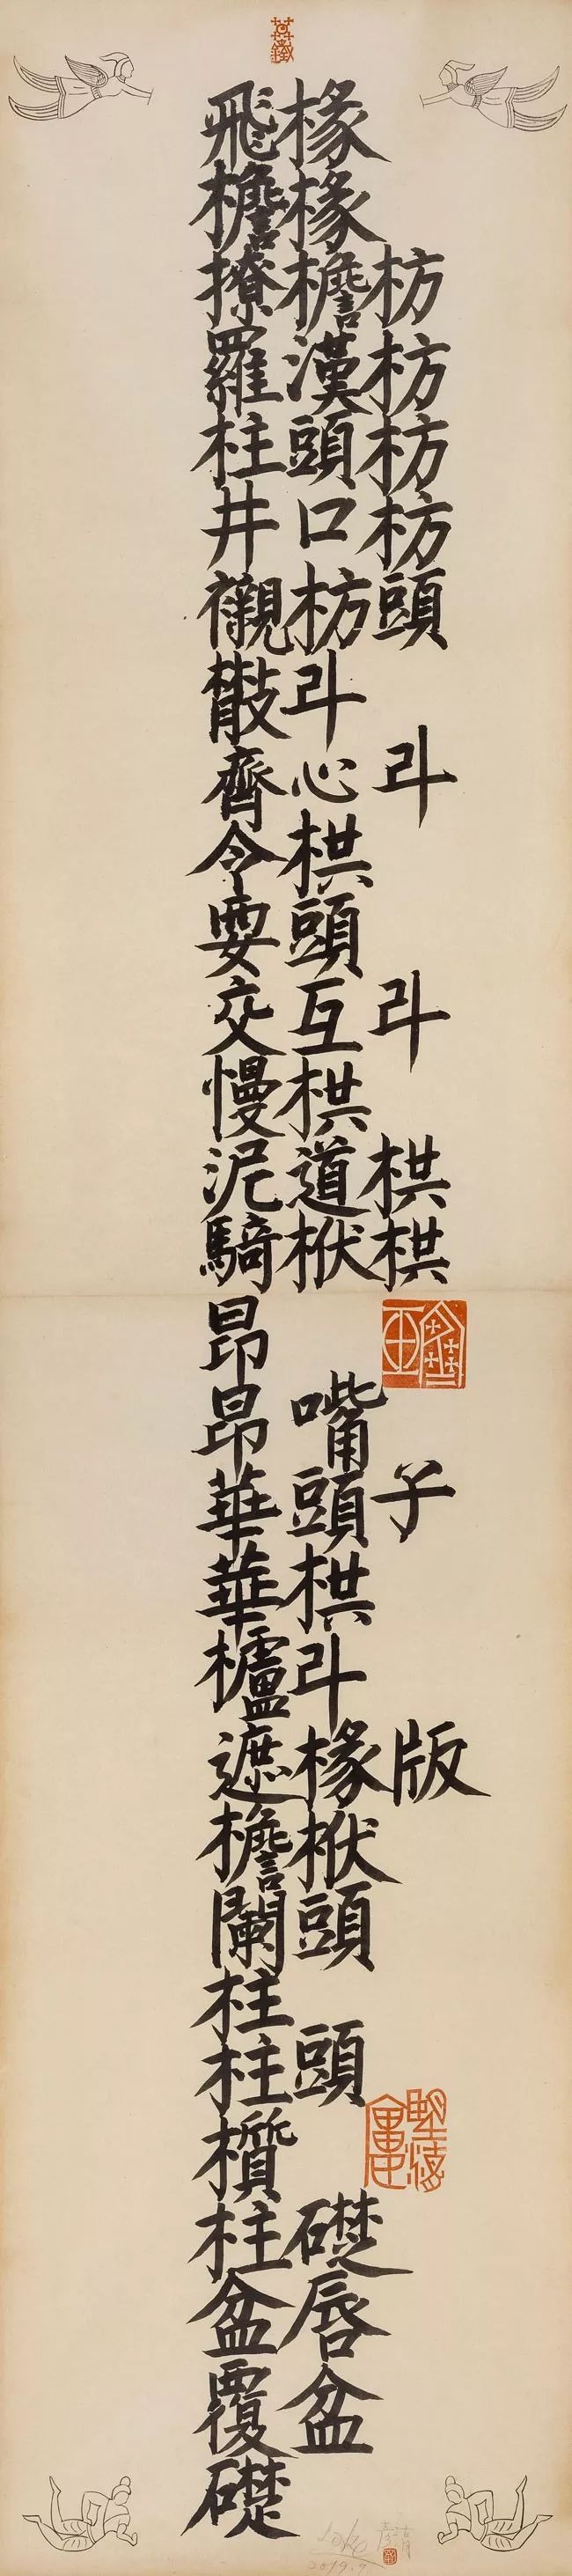 飛椽
檐椽
撩檐枋
羅漢枋
柱頭枋
井口枋
襯枋頭
散斗
齊心斗
令栱
耍頭
交互斗
慢栱
泥道栱
騎栿栱
昂
昂嘴
華頭子
華栱
櫨斗
遮椽版
檐栿
闌頭
柱
柱頭
櫍
柱礎
盆唇
覆盆
礎
2019.9